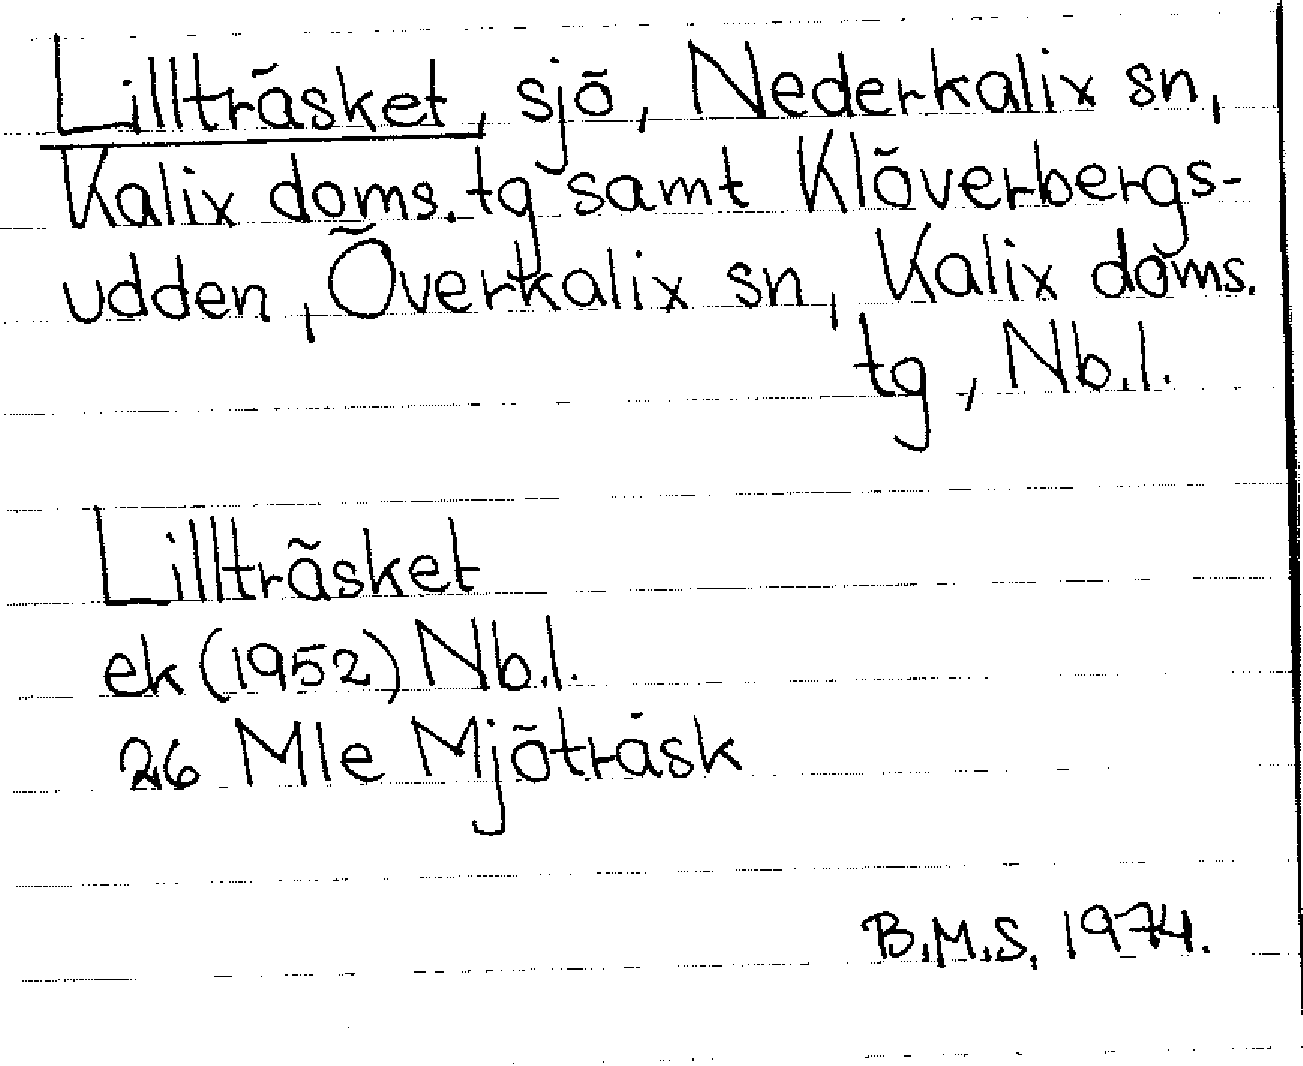 Lillträsket, sjö, Nederkalix sn,
Kalix doms. tg samt Klöverbergs-
udden, Överkalix sn, Kalix doms.
tg, Nb.l.
Lillträsket
ek (1952) Nb.l.
26 Mle Mjöträsk
B.M.S. 1974.